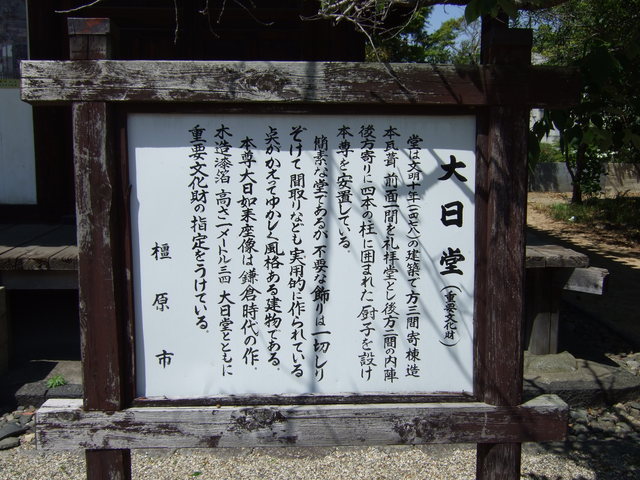 大日堂（重要文化財）
堂は文明十年（一四七八）の建築で方三間寄棟造
本瓦葺、前面一間を礼拝堂とし後方二間の内陣
後方寄りに四本の柱に囲まれた厨子を設け
本尊を安置している。
簡素な堂であるが、不要な飾りは一切しり
ぞけて間取りなども実用的に作られている
点がかえってゆかしく風格ある建物である。
本尊大日如来座像は鎌倉時代の作、
木造漆箔 高さ一メートル三四 大日堂とともに
重要文化財の指定をうけている。
橿原市